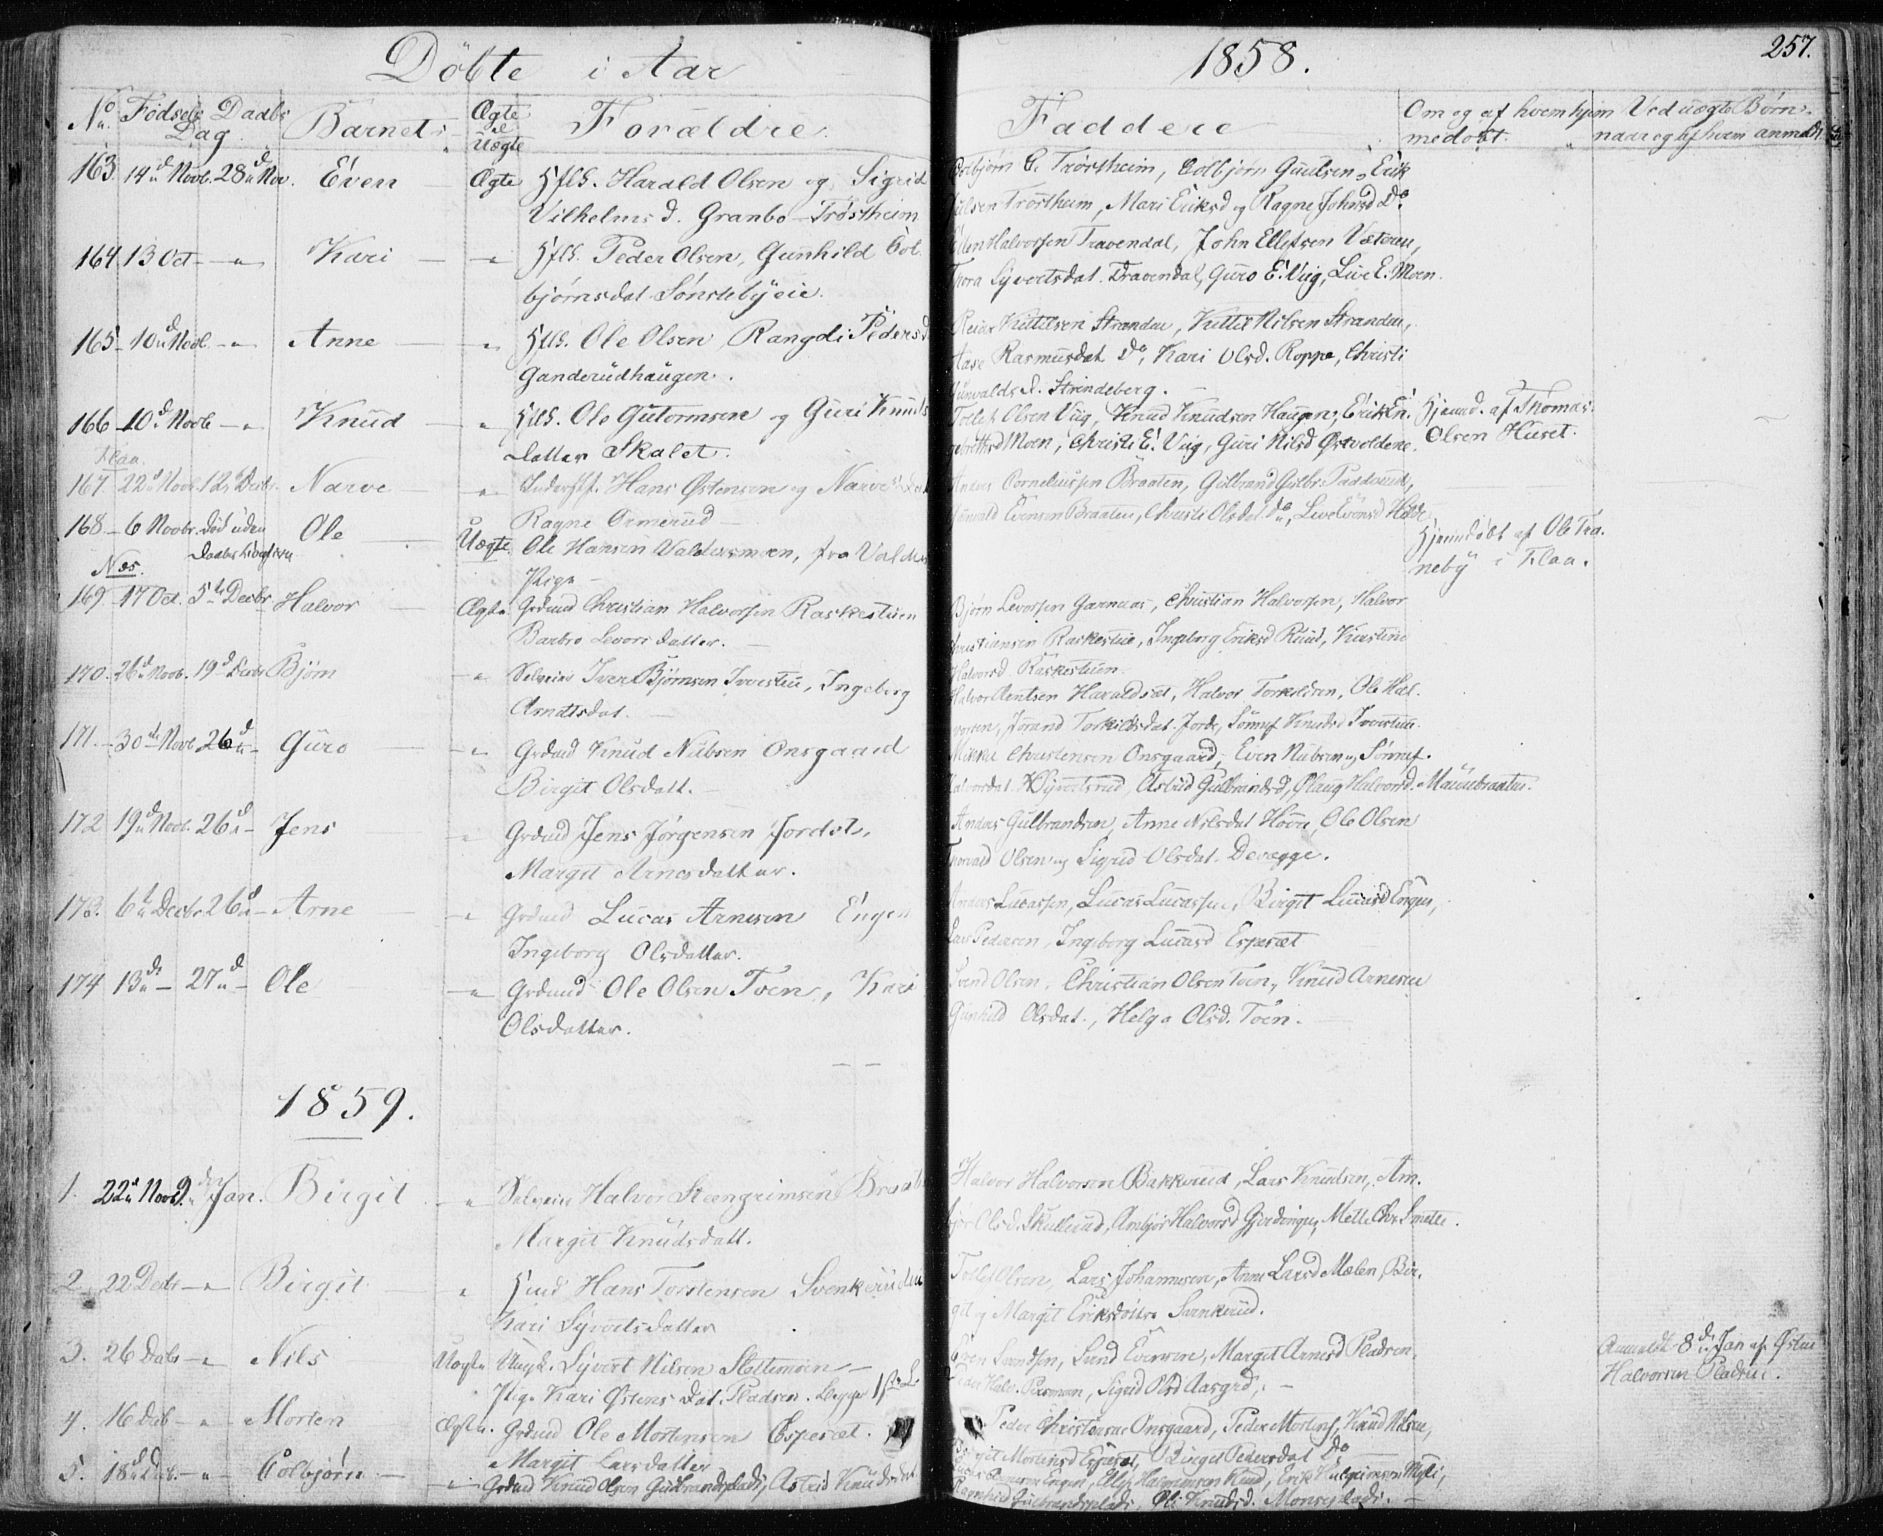 Döbte i Aar 1858. 257.
No. Födsels Daabs Dag Barnet Ægte el Uægte Forældre Faddere Om og af hvem hjemmedöbt. Ved uægte Börn, naar og af hvem anmeldt
163. 14de Novb. 28de Nov. Even Ægte Hflk. Harald Olsen og Sigrid
Vilhelmsd. Granbo-Tröstheim
Colbjörn C. Tröstheim, Colbjörn Gudsen, Erik
Tröstheim, Mari Eriksd og Ragne Johnsd Do.
164 13 Oct - " Kari - " Hflk. Peder Olsen, Gunhild Col
björnsdat Sönstebyeie.
Halvorsen Travendal, John Ellefsen Væteren,
Thora Syvertsdat. Travendal, Guro E. Viig, Live E. Moen.
165 - 10de Novb. - " Anne - " Hflk. Ole Olsen, Rangdi Pedersd
Ganderudhaugen.
Reier Kittilsen Stranden, Kittil Nilsen Stranden,
Aase Rasmusdat Do, Kari Olsd. Roppe, Christi
Gunvaldsd. Strindeberg.
166 - 10de Novb - " Knud - " Hflk. Ole Gutormsen og Guri Knuds
datter Skalet.
Tollef Olsen Viig, Knud Knudsen Haugen, Erik En.
Moen, Christi E. Viig, Guri Nilsd Östvoldene.
Hjemd. af Thomas
Olsen Huset.
Flaa.
167 22de Novb. 12te Decbr. Narve - " Hans Östensen og Narve
Ragne Ormerud -
Anders Corneliussen Braaten, Gulbrand Gulbr.
Evensen Braaten, Christi Olsdat. Do.,
168 - 6 Novbr. död uden Ole Uægte Ole Hansen Valdersmoen, fra Valders
Pige -
Hjemmedöbt af Ole Tra.
neby i Flaa.
Næs.
169 - 17 Oct. 5te Decbr Halvor Ægte Grdmd Christian Halvorsen Raskestuen
Barbro Levorsdatter. -
Björn Levorsen Garnaas, Christian Halvorsen, Halvor
Christiansen Raskestue, Ingeborg Eriksd Ruud, Kirstine
Halvorsd Raskestuen.
170. 26de Novb. 19de Decbr Björn - " Selveier Iver Björnsen Iverstu, Ingeborg
Arndtsdat. -
Halvor Arntsen Haraldset, Halvor Torkildsen, Ole Hal.
vorsen, Jörand Torkildsdat. Jorde, Sönnef Knudsd Iverstuen.
171. - 30te Novb 26de - Guro - " Grdmd Knud Nilsen Onsgaard
Birgit Olsdatt. -
Mikkel Christensen Onsgaard, Even Nubsen og Sönnef.
Halvorsdat. Syvertsrud, Astrid Gulbrandsd, Olaug Halvorsd. Mauribraaten.
172 19de Novb. 26de - Jens - " Grdmd Jens Jörgensen Jordet,
Margit Arnesdatter.
Anders Gulbrandsen, Anne Nilsdat Hovre, Ole Olsen
Thorvald Olsen og Sigrid Olsdat. Devegge.
173. 6te Decbr. 26de - Arne - " Grdmd Lucas Arnesen Engen
Ingeborg Olsdatter.
Anders Lucassen, Lucas Lucassen, Birgit Lucasd Engen,
Lars Pedersen, Ingeborg Lucasd Espeset
174 13de - 27de - Ole - " Grdmd Ole Olsen Toen, Kari
Olsdatter.
Svend Olsen, Christian Olsen Toen, Knud Arnesen
Gunhild Olsdat., Helga Olsd. Toen. -
1859.
1. 22de Novb. 2den Jan. Birgit - " Selveier Halvor Steengrimsen Braaten
Margit Knudsdatt.
Halvor Halvorsen Bakkerud, Lars Knudsen, Am.
björ Olsd. Skullerud, Ambjör Halvorsd Gjerdingen, Mette Chr. Smette.
2. 22 Decbr - " Birgit - " Hmd Hans Torstensen Svenkeruden
Kari Syvertsdatter
Tollef Olsen, Lars Johannesen, Anne Larsd Mælen, Bir.
git og Margit Eriksdöttre Svenkerud.
3. 26 Decbr - " Nils Uægte Ungk. Syvert Nilsen Slettemoen -
Pige Kari Östensdat. Pladsen. Begges 1ste L
Even Svendsen, Svend Evensen, Margit Arnesd Pladsen.
Peder Halv. , Sigrid Olsd Aasgrd, -
Anmeldt 8de Jan af Östen
Halvorsen Pladsen.
4. 16 Decb - " Morten Ægte. Grdmd Ole Mortensen Espeset.
Margit Larsdatter
Peder Christensen Onsgaard, Peder Mortens., Knud Nilsen,
Birgit Mortensd Espeset, Birget Pedersdat Do
5. 18de Decb. - " Colbjörn - " Grdmd Knud Olsen Gulbrandsplads, Astrid Knudsdat.
Engen, Ellef Halvorsen Ruud, Erik Halgrimsen
Ragnhild Gulbrandsplads, Knudsd. Monsplads. -